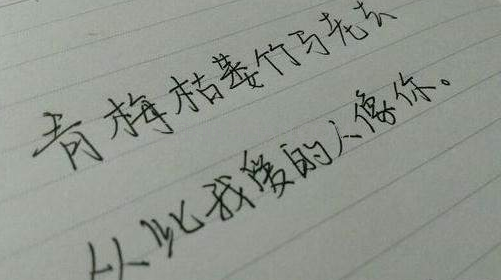 青梅枯萎竹马老去
从此我爱的人像你。